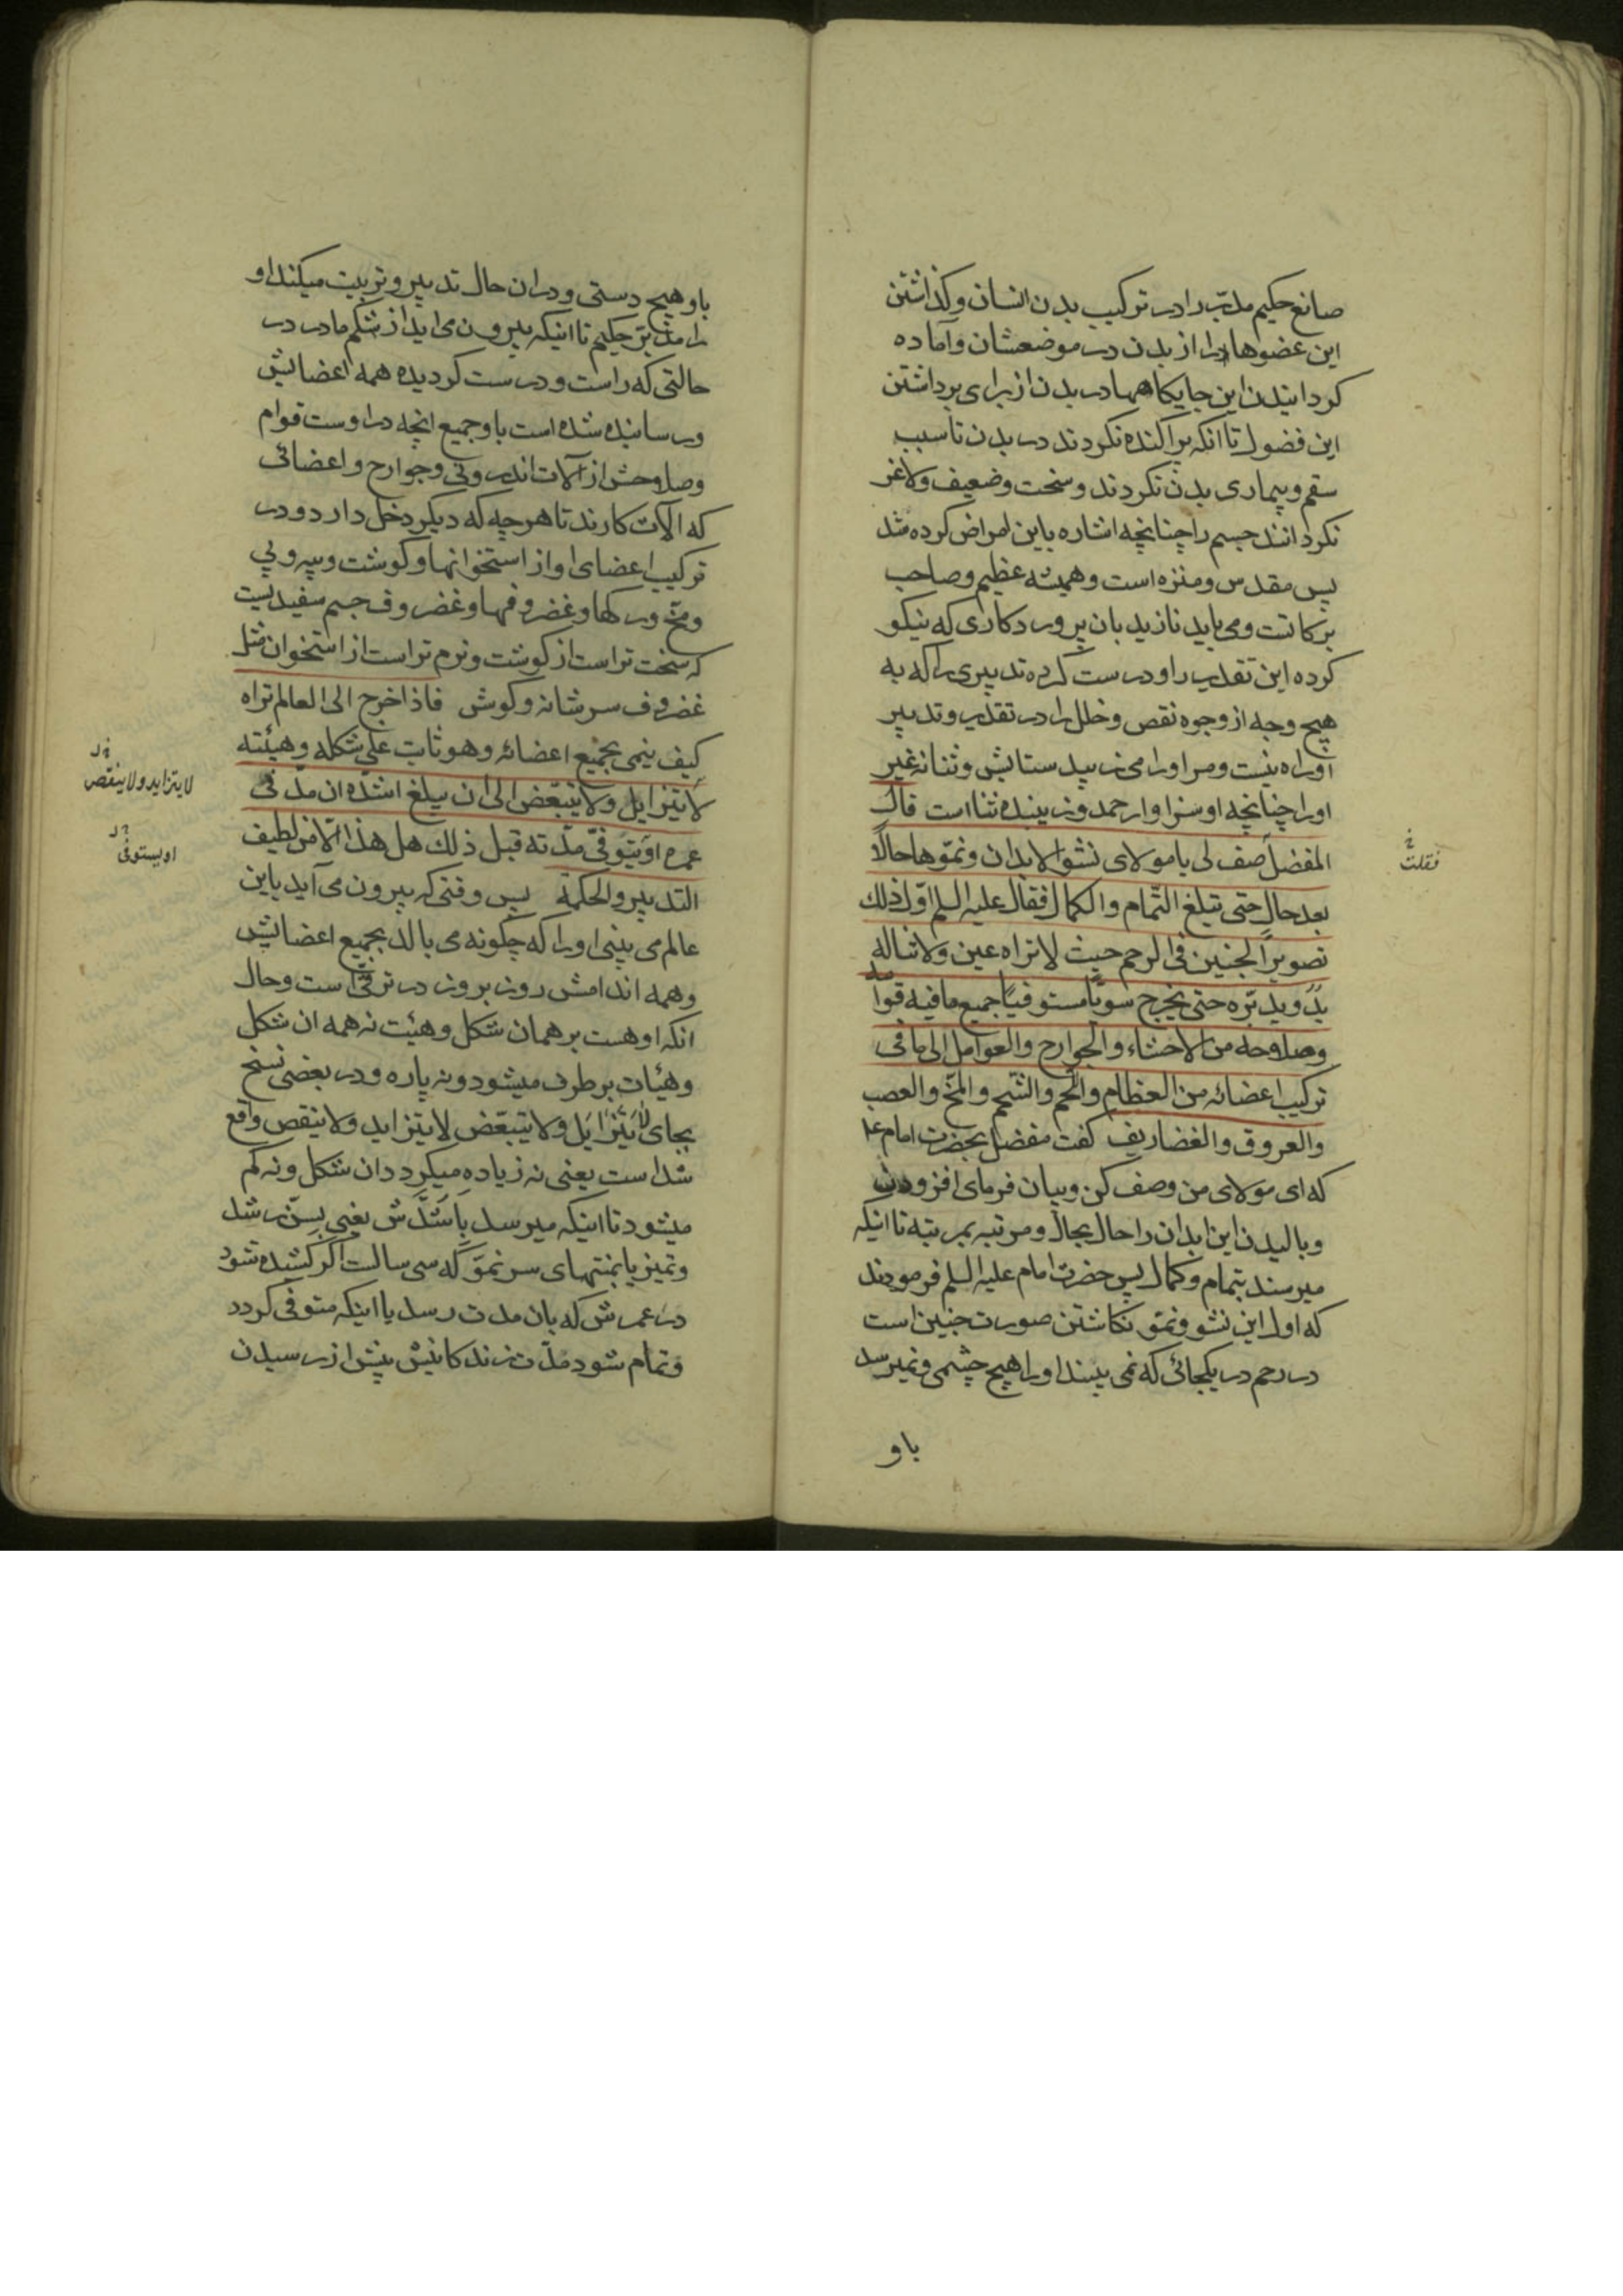 صانع حکیم مدبّر را در ترکیب بدن انسان و کذاشتن
این عضوها را از بدن در موضعشان و آماده
کردانیدن این جایکاهها در بدن از برای برداشتن
این فضول تا انکه پراکنده نکردند در بدن تا سبب
سقم و بیماری بدن نکردند و سخت و ضعیف و لاغر
نکردانند جسم را چنانچه اشاره باین امراض کرده شد
پس مقدس و منزه است و همیشه عظیم و صاحب
برکاتست و می باید نازید بان پرورد کاری که نیکو
کرده این تقدیر را و درست کرده تدبیری را که به
هیچ وجه از وجوه نقص و خلل را در تقدیر و تدبیر
او راه نیست و مر او را می زیبد ستایش و ثنا نه غیر
او را چنانچه او سزاوار حمد و زیبنده ثنا است قال
المفضل صف لی یا مولای نشو الابدان و نموّها حالاً
بعد حال حتی تبلغ التّمام والکمال فقال علیه السلم اوّل ذلك
تصویر الجنین فی الرحم حیث لا تراه عین ولا تناله
ید و یدبّره حتی یخرج سویّاً مستوفیاً جمیع ما فیه قوامه
وصلاحه من الاحشاء والجوارح والعوامل الی ما فی
ترکیب اعضائه من العظام واللحم والشحم والمخّ والعصب
والعروق والغضاریف کفت مفضل بحضرت امام ع
که ای مولای من وصف کن و بیان فرمای افزودن
و بالیدن این ابدان را حال بحال و مرتبه بمرتبه تا اینکه
میرسند بتمام و کمال پس حضرت امام علیه السلم فرمودند
که اول این نشو و نموّ نکاشتن صورت جنین است
در رحم در یکجائی که نمی بیند او را هیچ چشمی و نمیرسد
باو
فقلت
باو هیچ دستی و در ان حال تدبیر و تربیت میکند او
را مدبّر حکیم تا اینکه بیرون می اید از شکم مادر در
حالتی که راست و درست کردیده همه اعضائش
و رسانیده شده است باو جمیع انچه در اوست قوام
و صلاحش از آلات اندرونی و جوارح و اعضائی
که الآت کارند تا هر چه که دیکر دخل دارد و در
ترکیب اعضای او از استخوانها و کوشت و پیه و پی
و مخّ و رکها و غضروفها و غضروف جسم سفیدیست
که سخت تر است از کوشت و نرم تر است از استخوان مثل
غضروف سر شانه و کوش فاذا خرج الی العالم تراه
کیف ینمی بجمیع اعضائه و هو ثابت علی شکله و هیئته
لا یتزایل ولا یتبعّض الی ان یبلغ اشدّه ان مدّ فی
عمره او یتوفّی مدّته قبل ذلك هل هذا الّا من لطیف
التدبیر والحکمة پس وقتی که بیرون می آید باین
عالم می بینی او را که چکونه می بالد بجمیع اعضایش
و همه اندامش روز بروز در ترقّی است و حال
انکه او هست بر همان شکل و هیئت نه همه ان شکل
و هیئات بر طرف میشود و نه پاره و در بعضی نسخ
بجای لا یتزایل ولا یتبعّض لا یتزاید ولا ینقص واقع
شد است یعنی نه زیاده میکردد ان شکل و نه کم
میشود تا اینکه میرسد باشدّش یعنی بسنّ رشد
و تمیز یا بمنتهای سر نموّ که سی سالست اکر کشیده شود
در عمرش که بان مدت رسد یا اینکه متوفی کردد
و تمام شود مدّت زندکانیش پیش از رسیدن
لا یتزاید ولا ینقص
او یستوفی